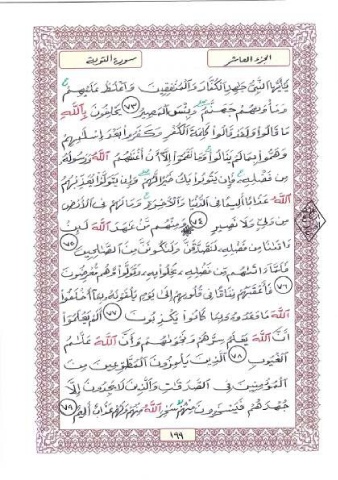 الجزء العاشر
سورة التوبة
يَٰٓأَيُّهَا ٱلنَّبِىُّ جَٰهِدِ ٱلْكُفَّارَ وَٱلْمُنَٰفِقِينَ وَٱغْلُظْ عَلَيْهِمْ
وَمَأْوَىٰهُمْ جَهَنَّمُ وَبِئْسَ ٱلْمَصِيرُ ٧٣ يَحْلِفُونَ بِٱللَّهِ
مَا قَالُوا۟ وَلَقَدْ قَالُوا۟ كَلِمَةَ ٱلْكُفْرِ وَكَفَرُوا۟ بَعْدَ إِسْلَٰمِهِمْ
وَهَمُّوا۟ بِمَا لَمْ يَنَالُوا۟ وَمَا نَقَمُوٓا۟ إِلَّآ أَنْ أَغْنَىٰهُمُ ٱللَّهُ وَرَسُولُهُۥ
مِن فَضْلِهِۦ فَإِن يَتُوبُوا۟ يَكُ خَيْرًا لَّهُمْ وَإِن يَتَوَلَّوْا۟ يُعَذِّبْهُمُ
ٱللَّهُ عَذَابًا أَلِيمًا فِى ٱلدُّنْيَا وَٱلْءَاخِرَةِ وَمَا لَهُمْ فِى ٱلْأَرْضِ
مِن وَلِىٍّ وَلَا نَصِيرٍ ٧٤ وَمِنْهُم مَّنْ عَٰهَدَ ٱللَّهَ لَئِنْ
ءَاتَىٰنَا مِن فَضْلِهِۦ لَنَصَّدَّقَنَّ وَلَنَكُونَنَّ مِنَ ٱلصَّٰلِحِينَ ٧٥
فَلَمَّآ ءَاتَىٰهُم مِّن فَضْلِهِۦ بَخِلُوا۟ بِهِۦ وَتَوَلَّوا۟ وَّهُم مُّعْرِضُونَ
٧٦ فَأَعْقَبَهُمْ نِفَاقًا فِى قُلُوبِهِمْ إِلَىٰ يَوْمِ يَلْقَوْنَهُۥ بِمَآ أَخْلَفُوا۟
ٱللَّهَ مَا وَعَدُوهُ وَبِمَا كَانُوا۟ يَكْذِبُونَ ٧٧ أَلَمْ يَعْلَمُوٓا۟
أَنَّ ٱللَّهَ يَعْلَمُ سِرَّهُمْ وَنَجْوَىٰهُمْ وَأَنَّ ٱللَّهَ عَلَّٰمُ
ٱلْغُيُوبِ ٧٨ ٱلَّذِينَ يَلْمِزُونَ ٱلْمُطَّوِّعِينَ مِنَ
ٱلْمُؤْمِنِينَ فِى ٱلصَّدَقَٰتِ وَٱلَّذِينَ لَا يَجِدُونَ إِلَّا
جُهْدَهُمْ فَيَسْخَرُونَ مِنْهُمْ سَخِرَ ٱللَّهُ مِنْهُمْ وَلَهُمْ عَذَابٌ أَلِيمٌ ٧٩
١٩٩